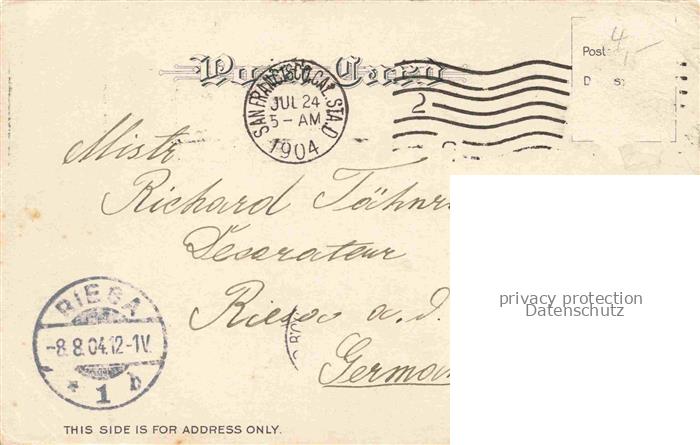 Post Card
SAN FRANCISCO, CAL. STA. D
JUL 24
5-AM
1904
2
Post
D s
4/-
Mistr
Richard Tähnr
Decorateur
Riesa a. d.
German
RIESA
-8.8.04.12-1V.
* 1 b
privacy protection
Datenschutz
THIS SIDE IS FOR ADDRESS ONLY.